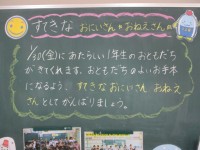 すてきな おにいさん・おねえさん
1/30(金)にあたらしい1年生のおともだち
がきてくれます。おともだちのよいお手本
になるよう、すてきなおにいさん おねえ
さんとしてがんばりましょう。